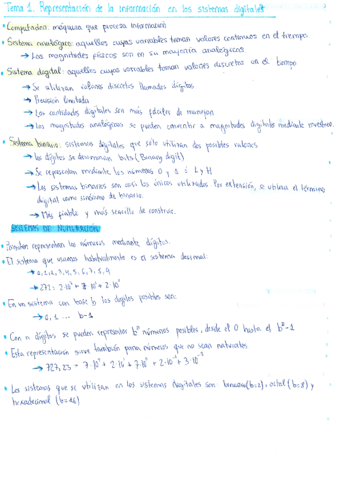 Tema 1. Representación de la información en los sistemas digitales
• Computador: máquina que procesa información
• Sistema analógico: aquellos cuyas variables toman valores continuos en el tiempo
→ Las magnitudes físicas son en su mayoría analógicas
• Sistema digital: aquellos cuyas variables toman valores discretos en el tiempo
→ Se utilizan valores discretos llamados dígitos
→ Precisión limitada
→ Las cantidades digitales son más fáciles de manejar
→ Las magnitudes analógicas se pueden convertir a magnitudes digitales mediante muestreo
• Sistema binario: sistemas digitales que sólo utilizan dos posibles valores
→ Los dígitos se denominan bits (Binary digit)
→ Se representan mediante los números 0 y 1 ó L y H
→ Los sistemas binarios son casi los únicos utilizados. Por extensión, se utiliza el término
digital como sinónimo de binario.
→ Más fiable y más sencillo de construir.
SISTEMAS DE NUMERACIÓN
• Permiten representar los números mediante dígitos.
• El sistema que usamos habitualmente es el sistema decimal:
→ 0, 1, 2, 3, 4, 5, 6, 7, 8, 9
→ 272 = 2·10² + 7·10¹ + 2·10⁰
• En un sistema con base b los dígitos posibles son:
→ 0, 1 ... b-1
• Con n dígitos se pueden representar bⁿ números posibles, desde el 0 hasta el bⁿ-1
• Esta representación sirve también para números que no sean naturales
→ 727,23 = 7·10² + 2·10¹ + 7·10⁰ + 2·10⁻¹ + 3·10⁻²
• Los sistemas que se utilizan en los sistemas digitales son: binario (b=2), octal (b=8) y
hexadecimal (b=16)